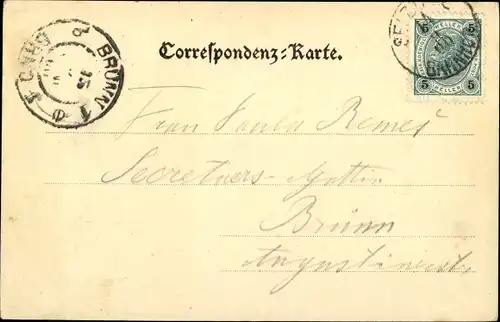 Correspondenz-Karte.
BRÜNN 1
BRNO
5 HELLER 5
Frau Paula Remeš
Secretärs-Gattin
Brünn
Augustinerstr.